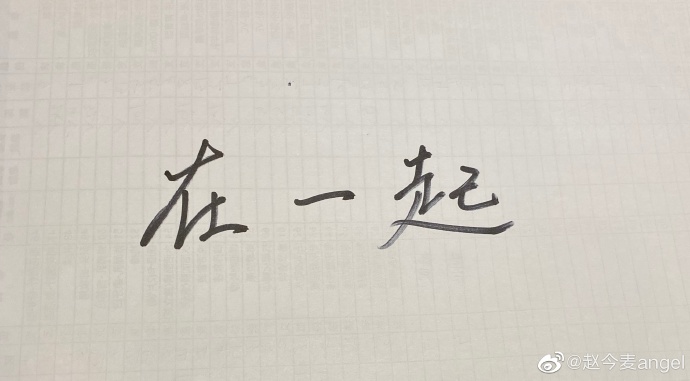 在一起
@赵今麦angel